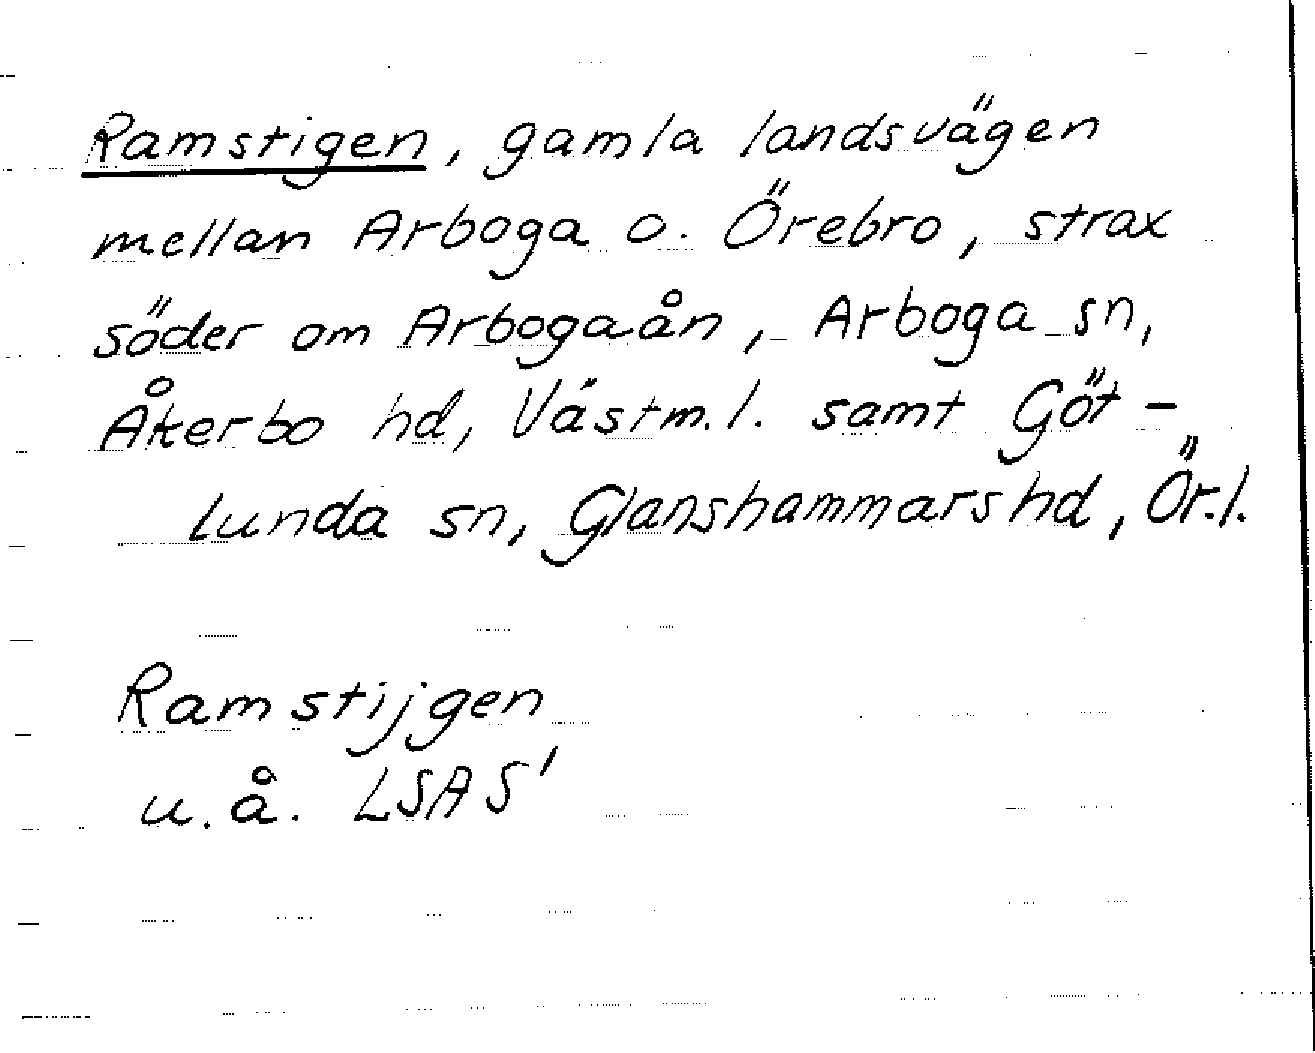 Ramstigen, gamla landsvägen
mellan Arboga o. Örebro, strax
söder om Arbogaån, Arboga sn,
Åkerbo hd, Västm. l. samt Göt-
lunda sn, Glanshammars hd, Ör. l.
Ramstijgen
u. å. LSAS'